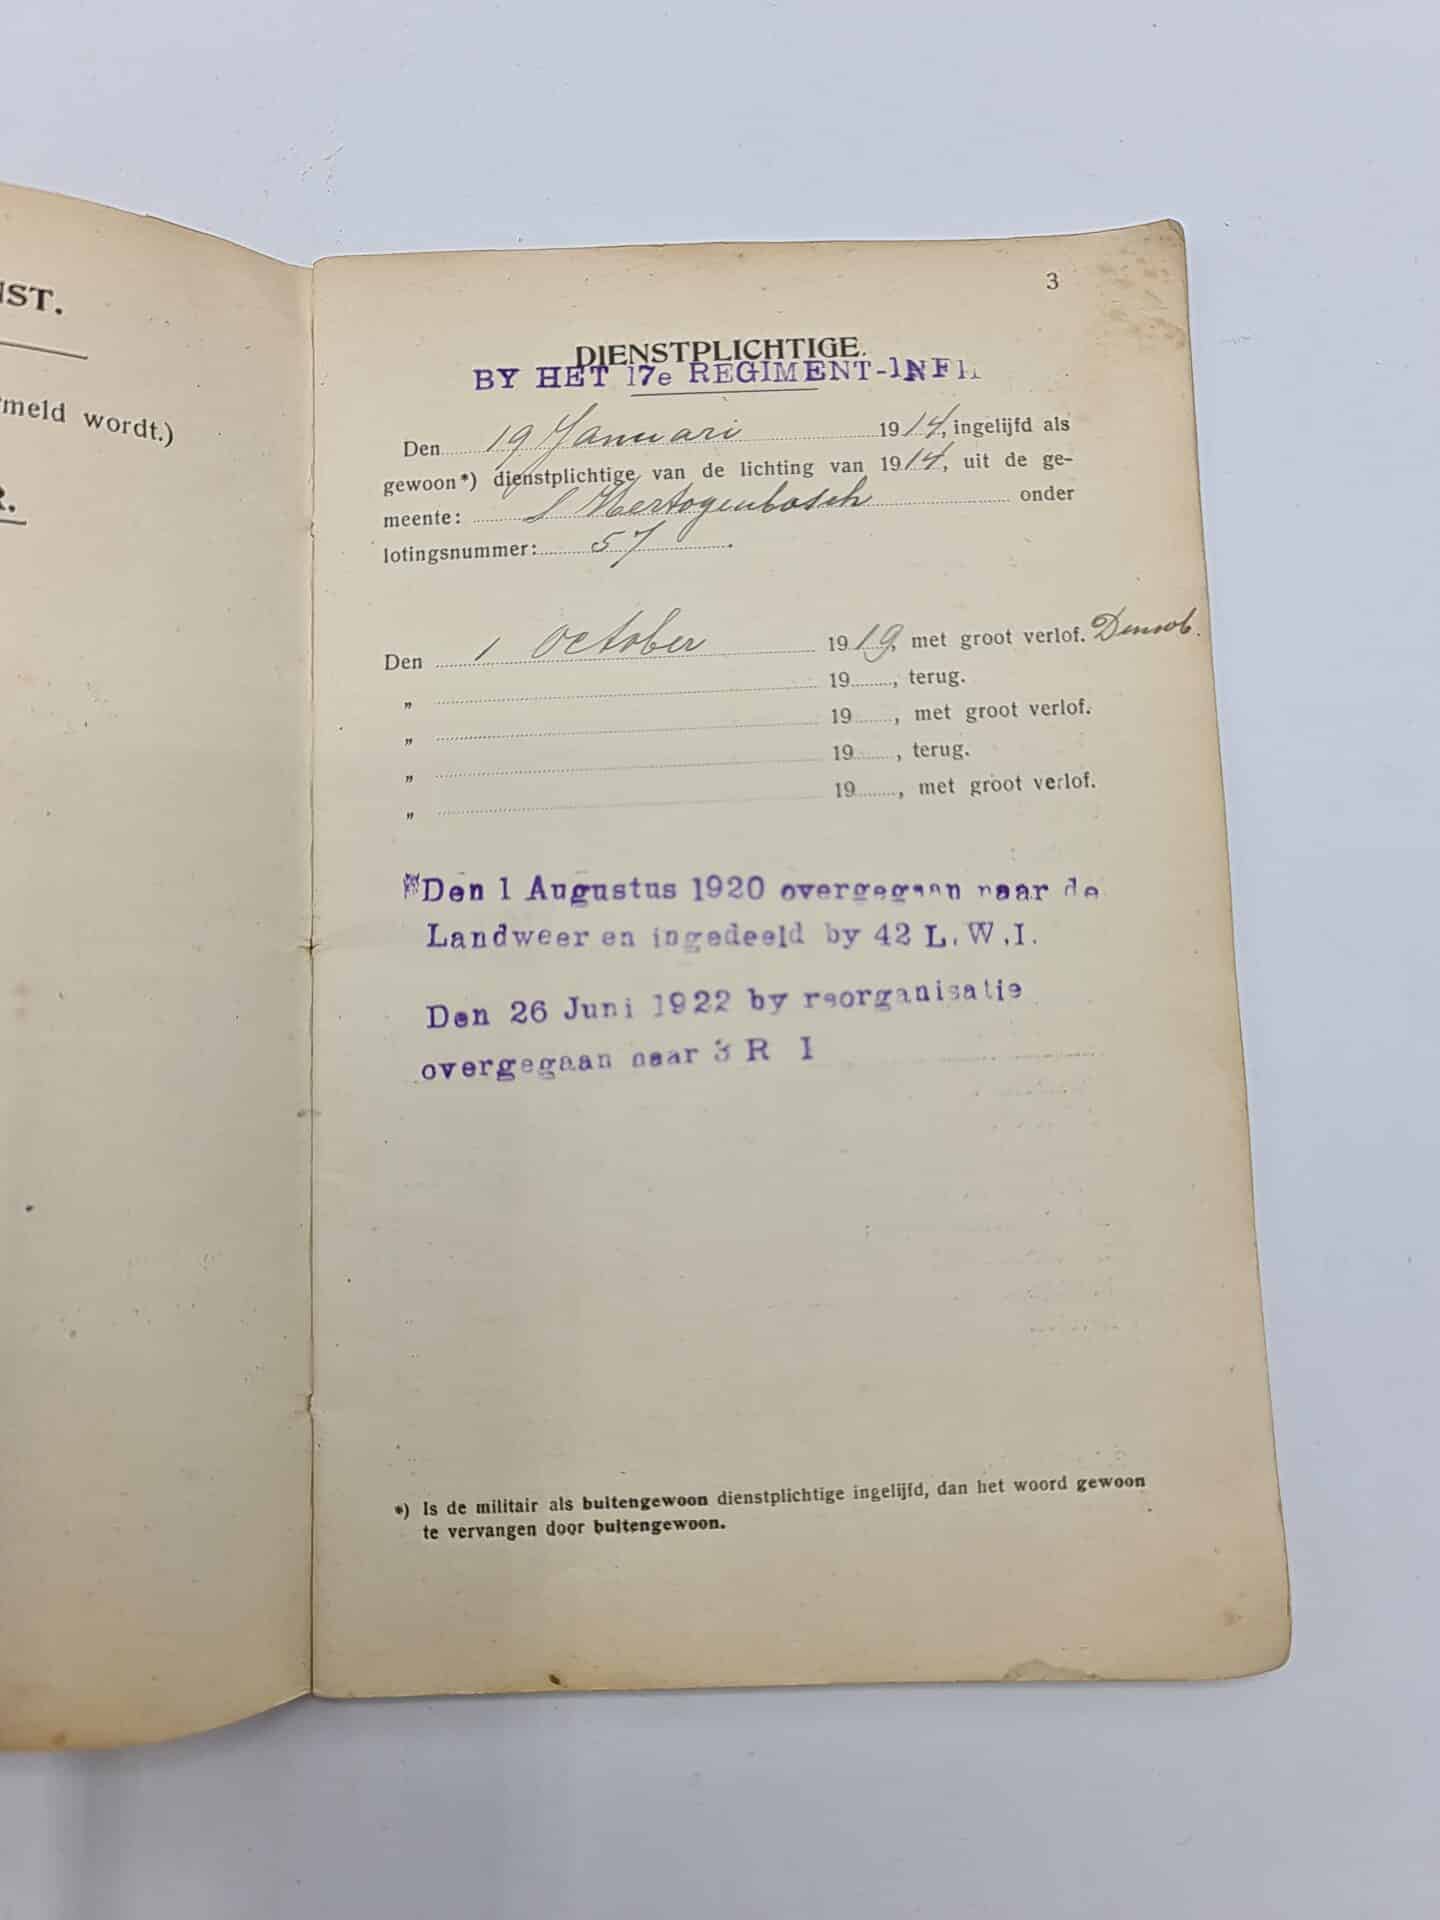 NST.
meld wordt.)
R.
3
DIENSTPLICHTIGE.
BY HET 17e REGIMENT-INF
Den 19 Januari 1914, ingelijfd als
gewoon*) dienstplichtige van de lichting van 1914, uit de ge-
meente: s Hertogenbosch onder
lotingsnummer: 57.
Den 1 October 1919, met groot verlof. Demob.
„ 19, terug.
„ 19, met groot verlof.
„ 19, terug.
„ 19, met groot verlof.
Den 1 Augustus 1920 overgegaan naar de
Landweer en ingedeeld by 42 L.W.I.
Den 26 Juni 1922 by reorganisatie
overgegaan naar 3 R I
*) Is de militair als buitengewoon dienstplichtige ingelijfd, dan het woord gewoon
te vervangen door buitengewoon.